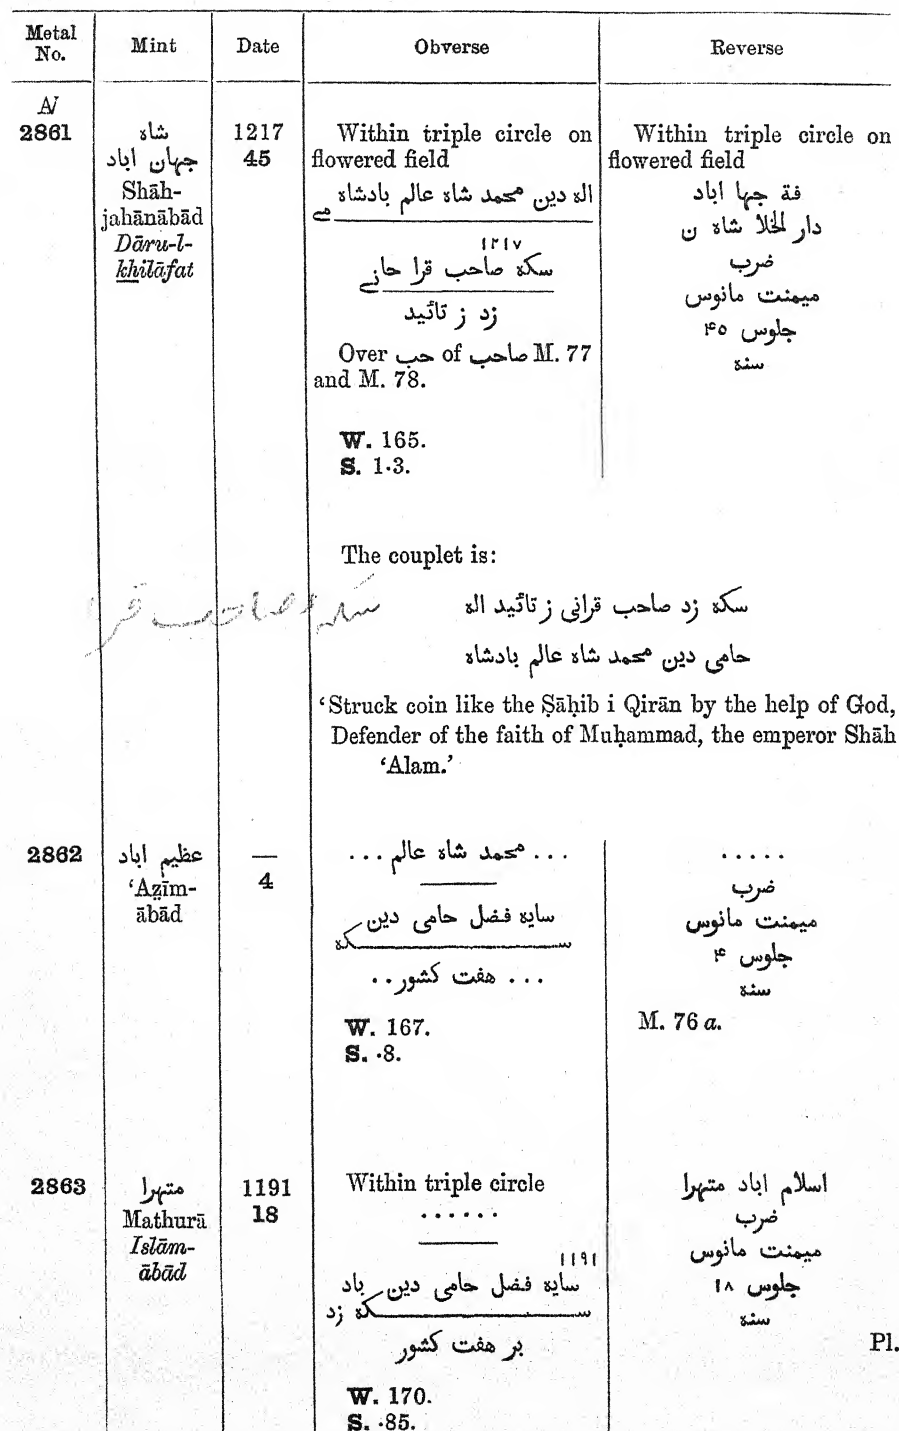 Metal No. Mint Date Obverse Reverse
2861
شاه
جهان اباد
Shāh-
jahānābād
Dāru-l-
khilāfat
1217
45
Within triple circle on
flowered field
اله دين محمد شاه عالم بادشاه
مے
١٢١٧
سكه صاحب قرا حانے
زد ز تائيد
Over حب of صاحب M. 77
and M. 78.
W. 165.
S. 1·3.
Within triple circle on
flowered field
فة جها اباد
دار الخلا شاه ن
ضرب
ميمنت مانوس
جلوس ۴۵
سنة
The couplet is:
سكه زد صاحب قرانى ز تائيد اله
حامى دين محمد شاه عالم بادشاه
سكه صاحب قرا
‘Struck coin like the Ṣāḥib i Qirān by the help of God,
Defender of the faith of Muḥammad, the emperor Shāh
‘Alam.’
2862
عظيم اباد
‘Aẓīm-
ābād
—
4
... محمد شاه عالم ...
سايه فضل حامى دين
سكه
... هفت كشور ..
W. 167.
S. ·8.
.....
ضرب
ميمنت مانوس
جلوس ۴
سنة
M. 76 a.
2863
متهرا
Mathurā
Islām-
ābād
1191
18
Within triple circle
......
١١٩١
سايه فضل حامى دين باد
سكه زد
بر هفت كشور
W. 170.
S. ·85.
اسلام اباد متهرا
ضرب
ميمنت مانوس
جلوس ١٨
سنة
Pl.